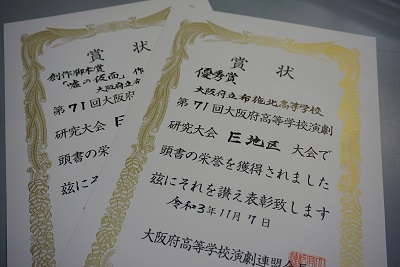 賞状
創作脚本賞
「嘘の仮面」作
大阪府立布
第71回大阪府
研究大会 E
頭書の栄誉を獲
茲にそ
賞状
優秀賞
大阪府立布施北高等学校
第71回大阪府高等学校演劇
研究大会 E地区 大会で
頭書の栄誉を獲得されました
茲にそれを讃え表彰致します
令和3年11月7日
大阪府高等学校演劇連盟会長